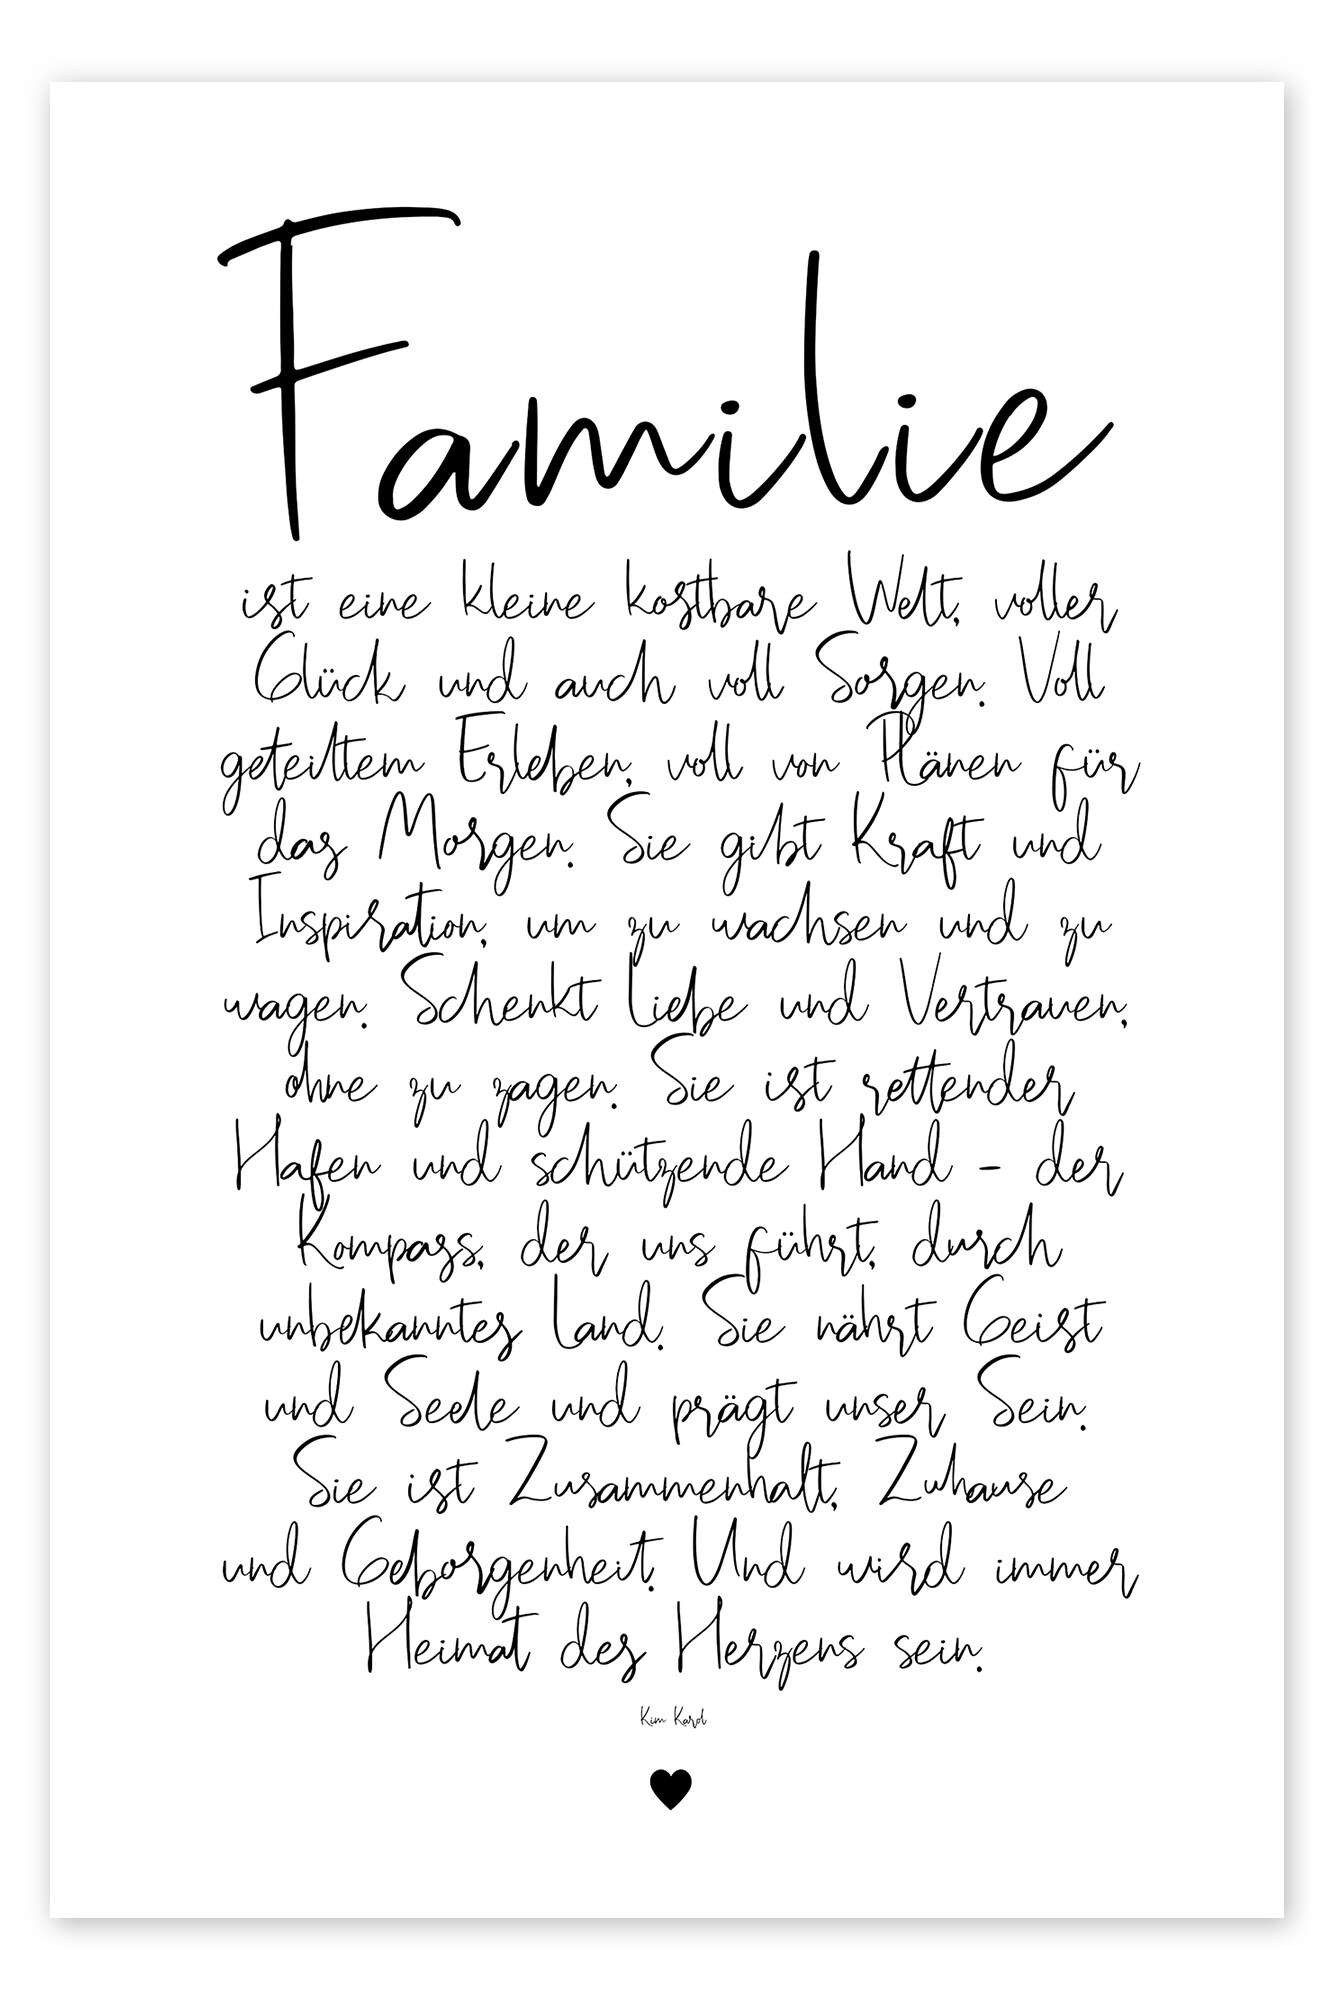 Familie
ist eine kleine kostbare Welt, voller
Glück und auch voll Sorgen. Voll
geteiltem Erleben, voll von Plänen für
das Morgen. Sie gibt Kraft und
Inspiration, um zu wachsen und zu
wagen. Schenkt Liebe und Vertrauen,
ohne zu zagen. Sie ist rettender
Hafen und schützende Hand - der
Kompass, der uns führt, durch
unbekanntes Land. Sie nährt Geist
und Seele und prägt unser Sein.
Sie ist Zusammenhalt, Zuhause
und Geborgenheit. Und wird immer
Heimat des Herzens sein.
Kim Karol